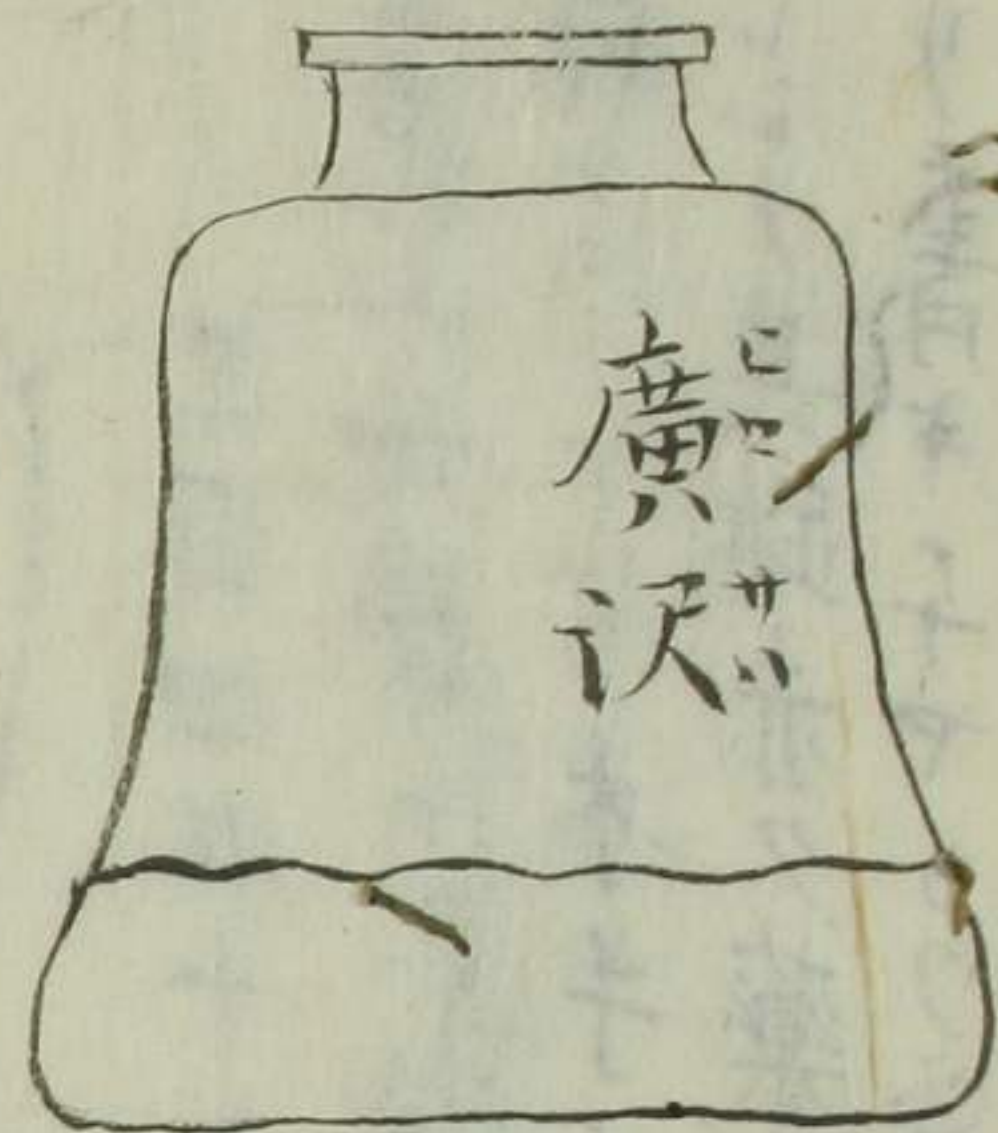 廣沢
ヒロサハ